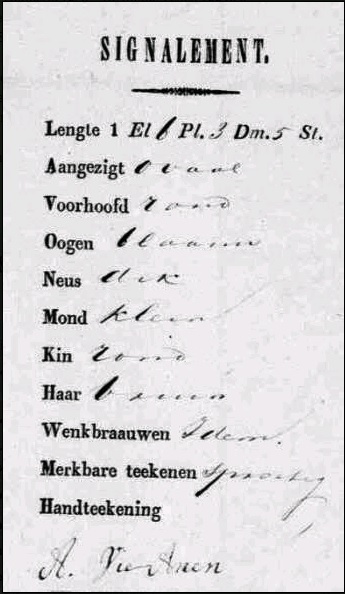 SIGNALEMENT.
Lengte 1 El 6 Pl. 3 Dm. 5 St.
Aangezigt ovaal
Voorhoofd rond
Oogen blaauw
Neus dik
Mond klein
Kin rond
Haar bruin
Wenkbraauwen Idem.
Merkbare teekenen sproetig
Handteekening
A.